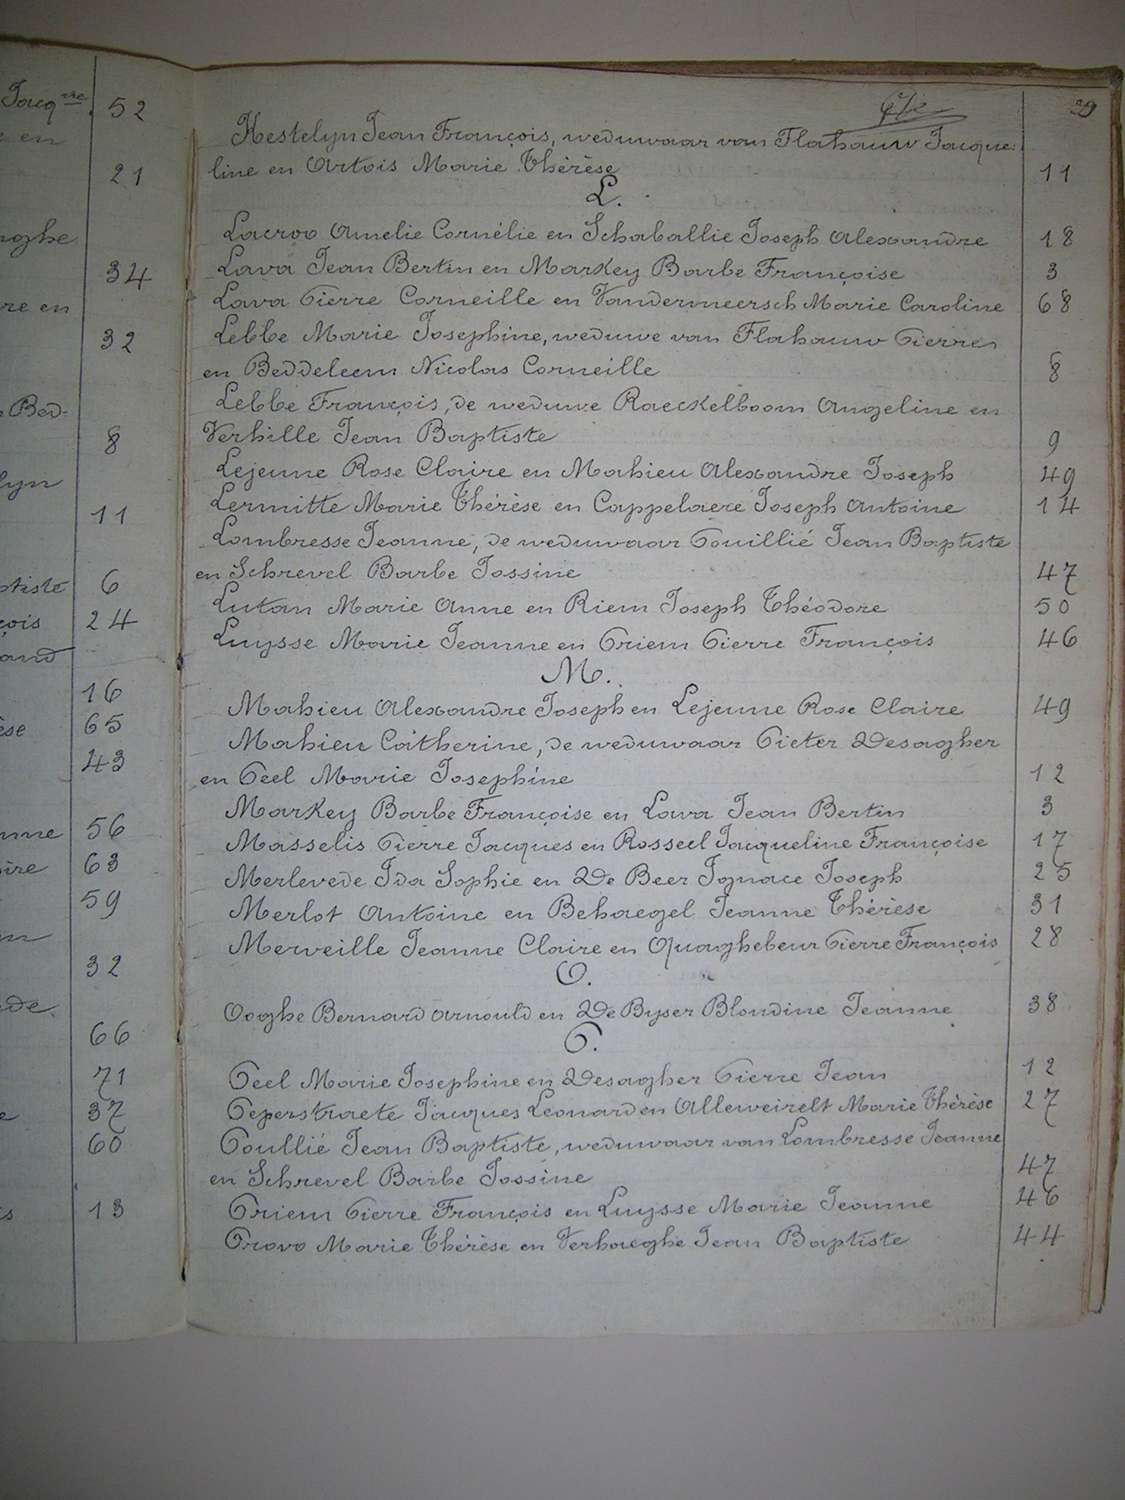 Jacq.
52
en
21
oghe
34
re en
32
Bed-
8
lyn
11
ptiste 6
çois 24
and
16
èse 65
43
nne 56
oire 63
59
32
ede
66
71
37
60
is 13
29
Kestelyn Jean François, weduwaar van Flahauw Jacque-
line en Artois Marie Thérèse 11
L.
Lacroo Amelie Cornélie en Schaballie Joseph Alexandre 18
Lava Jean Bertin en Markey Barbe Françoise 3
Lava Pierre Corneille en Vandermeersch Marie Caroline 68
Lebbe Marie Josephine, weduwe van Flahauw Pierre
en Beddeleem Nicolas Corneille 8
Lebbe François, de weduwe Raeckelboom Angeline en
Verhille Jean Baptiste 9
Lejeune Rose Claire en Mahieu Alexandre Joseph 49
Lermitte Marie Thérèse en Cappelaere Joseph Antoine 14
Lombresse Jeanne, de weduwaar Pouillié Jean Baptiste
en Schrevel Barbe Jossine 47
Lutan Marie Anne en Riem Joseph Théodore 50
Luysse Marie Jeanne en Priem Pierre François 46
M.
Mahieu Alexandre Joseph en Lejeune Rose Claire 49
Mahieu Catherine, de weduwaar Pieter Desagher
en Peel Marie Josephine 12
Markey Barbe Françoise en Lava Jean Bertin 3
Masselis Pierre Jacques en Rosseel Jacqueline Françoise 17
Merlevede Ida Sophie en De Beer Ignace Joseph 25
Merlot Antoine en Behaegel Jeanne Thérèse 31
Merveille Jeanne Claire en Quaghebeur Pierre François 28
O.
Ooghe Bernard Arnould en De Byser Blondine Jeanne 38
P.
Peel Marie Josephine en Desagher Pierre Jean 12
Peperstraete Jacques Leonard en Alleweirelt Marie Thérèse 27
Poullié Jean Baptiste, weduwaar van Lombresse Jeanne
en Schrevel Barbe Jossine 47
Priem Pierre François en Luysse Marie Jeanne 46
Provo Marie Thérèse en Verhaeghe Jean Baptiste 44